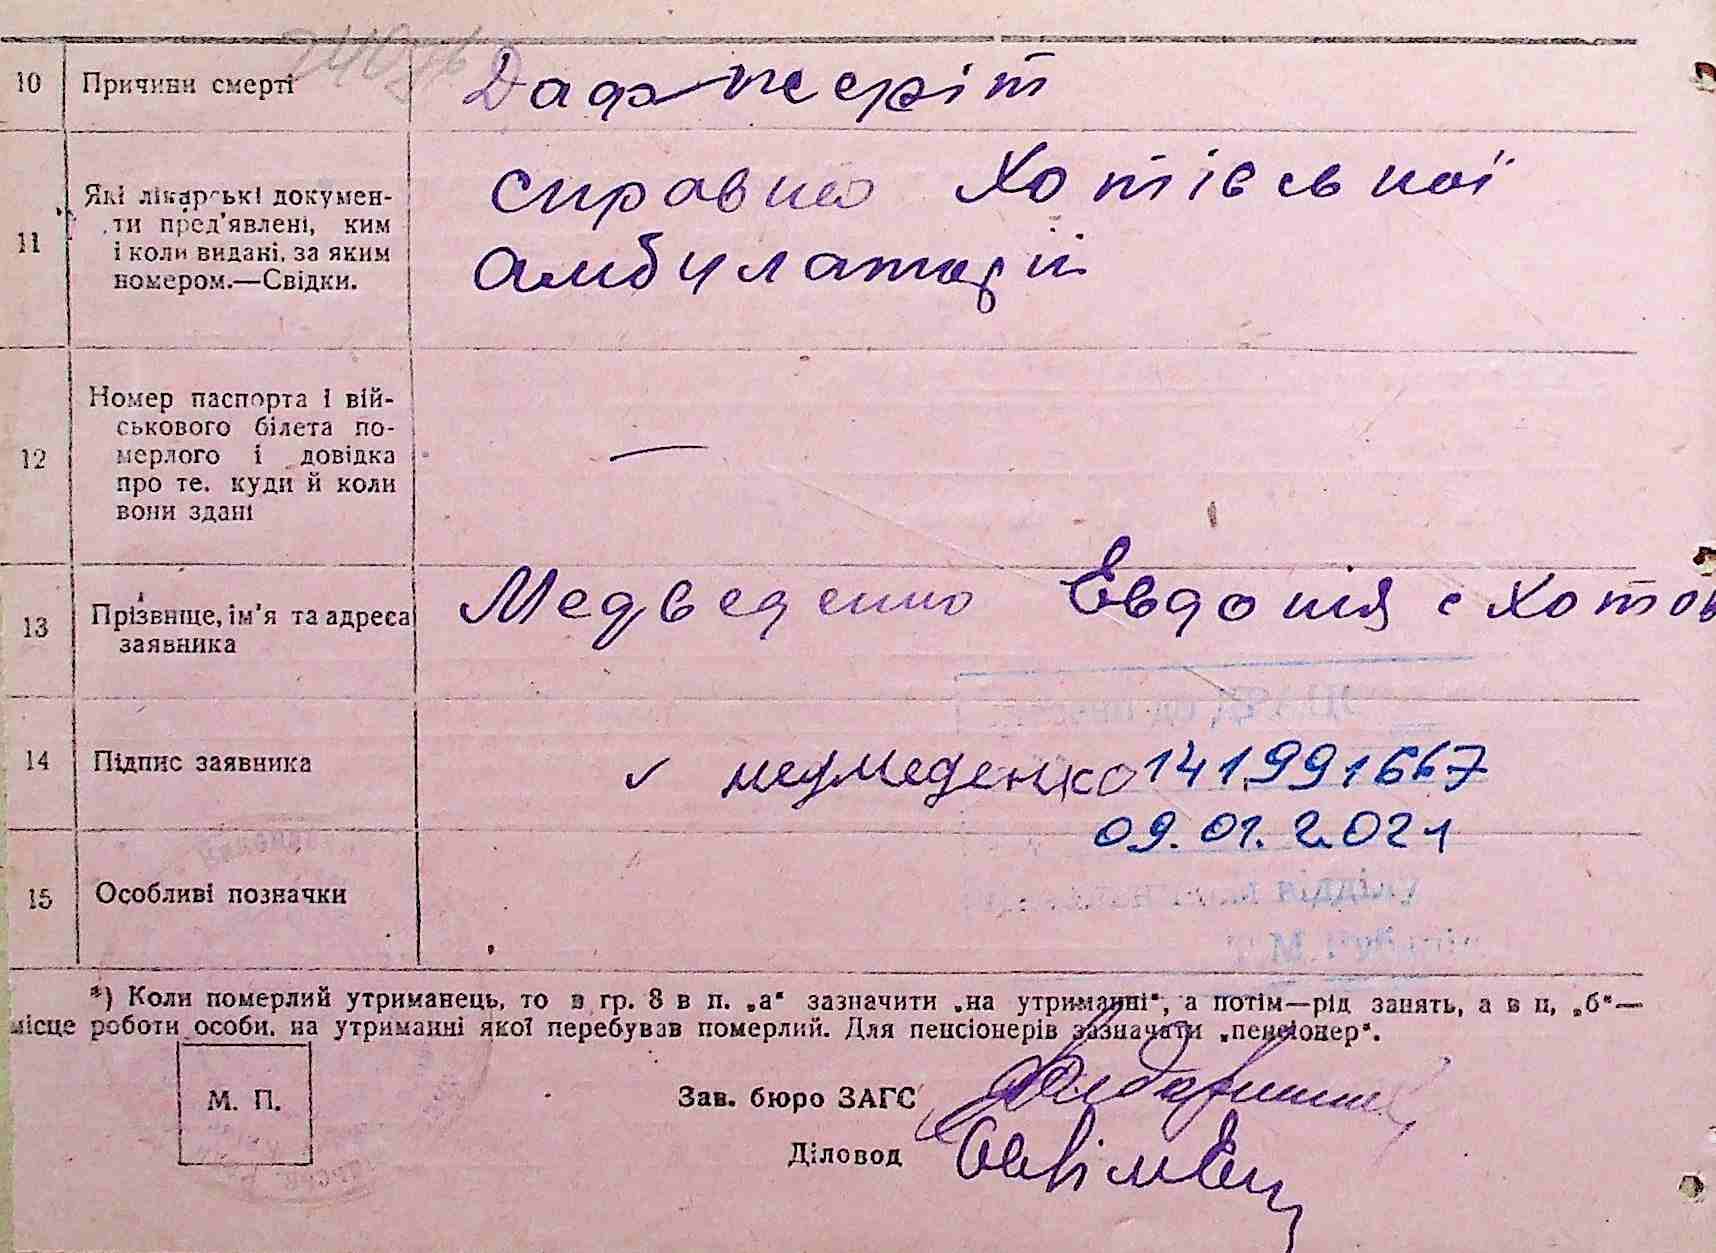 10 Причини смерті Дафтеріт
11 Які лікарські докумен-
ти пред'явлені, ким
і коли видані, за яким
номером.—Свідки.
справка Хотівської
амбулаторії
12 Номер паспорта і вій-
ськового білета по-
мерлого і довідка
про те, куди й коли
вони здані
—
13 Прізвище, ім'я та адреса
заявника
Медведенко Евдокія с Хотов
14 Підпис заявника ✓ медмеденко 141991667
09.01.2021
15 Особливі позначки
*) Коли померлий утриманець, то в гр. 8 в п. „а“ зазначити „на утриманні“, а потім—рід занять, а в п, „б“—
місце роботи особи, на утриманні якої перебував померлий. Для пенсіонерів зазначати „пенсіонер“.
М. П.
Зав. бюро ЗАГС
Діловод